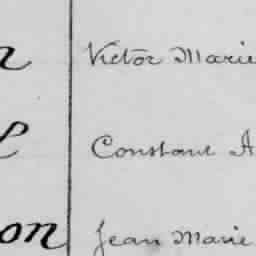 Victor Marie
Constant A
on Jean Marie